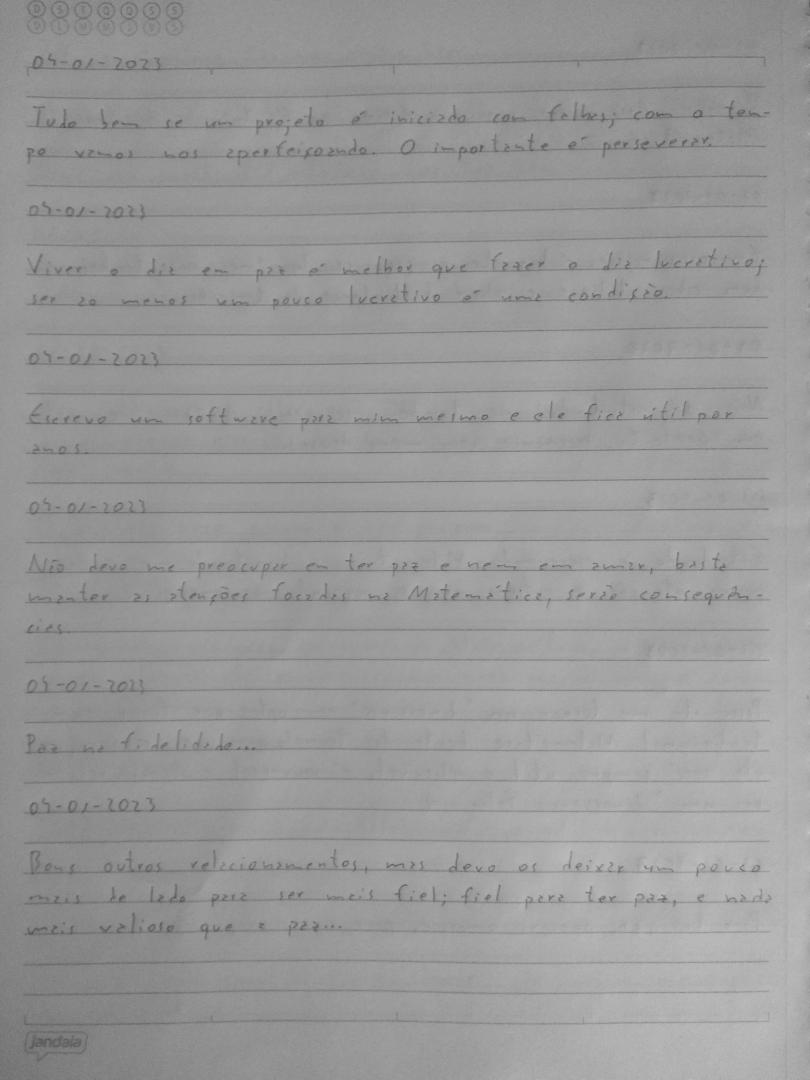 D S T Q Q S S
04-01-2023
Tudo bem se um projeto é iniciado com falhas; com o tem-
po vamos nos aperfeiçoando. O importante é perseverar.
04-01-2023
Viver o dia em paz é melhor que fazer o dia lucrativo;
ser ao menos um pouco lucrativo é uma condição.
04-01-2023
Escrevo um software para mim mesmo e ele fica útil por
anos.
04-01-2023
Não devo me preocupar em ter paz e nem em amar, basta
manter as atenções focadas na Matemática, serão consequên-
cias.
04-01-2023
Paz na fidelidade...
04-01-2023
Bons outros relacionamentos, mas devo os deixar um pouco
mais de lado para ser mais fiel; fiel para ter paz, e nada
mais valioso que a paz...
jandaia